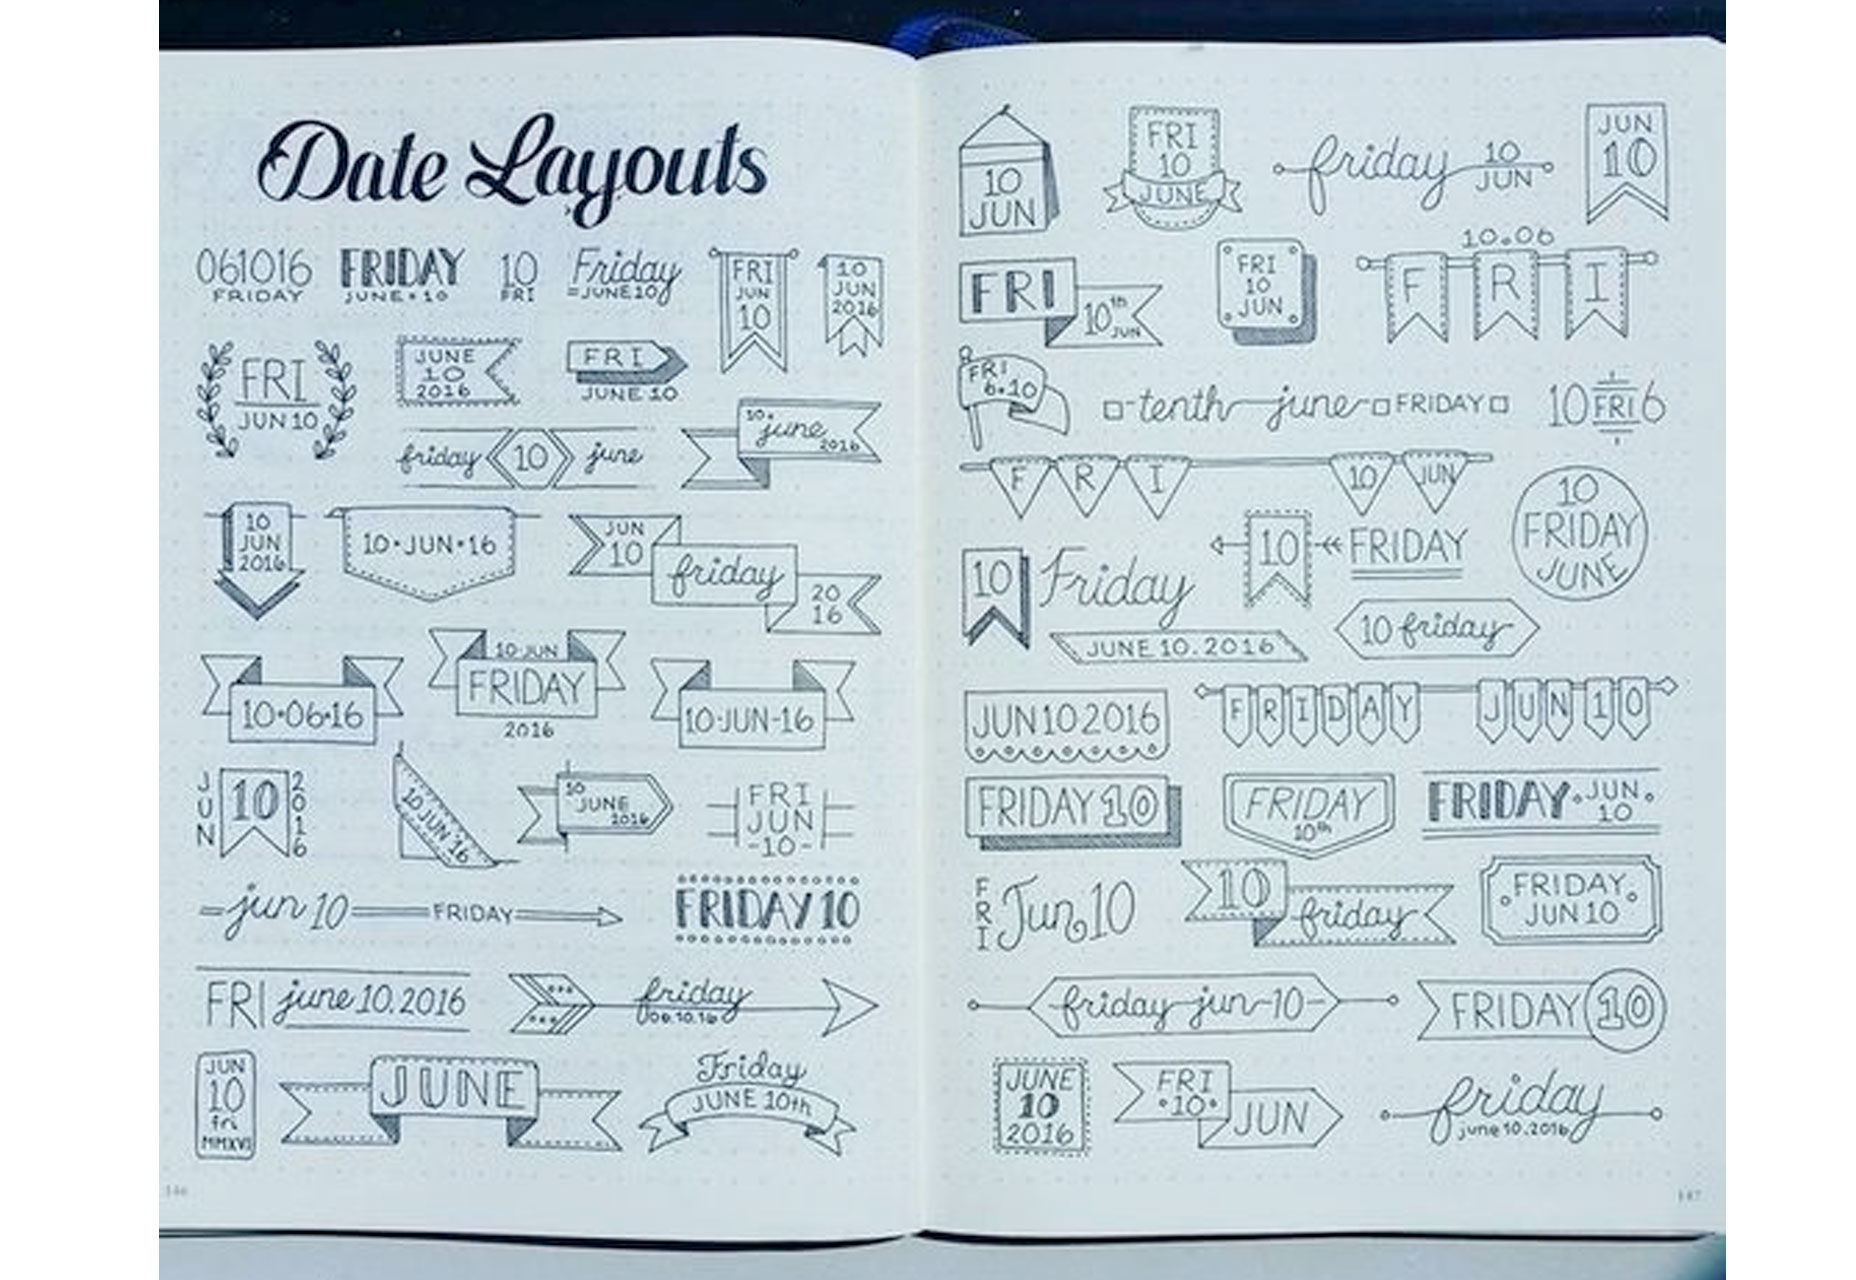 Date Layouts
061016
FRIDAY
FRIDAY
JUNE • 10
10
FRI
Friday
=JUNE 10
FRI
JUN
10
10
JUN
2016
FRI
JUN 10
JUNE
10
2016
FRI
JUNE 10
friday 10 june
10.
june
2016
10
JUN
2016
10•JUN•16
JUN
10
friday
20
16
10•06•16
10·JUN
FRIDAY
2016
10·JUN-16
JUN
10
2016
10 JUN 16
10
JUNE
2016
FRI
JUN
-10-
jun 10 FRIDAY
FRIDAY 10
FRI june 10.2016
friday
06.10.16
JUN
10
fri
MMXVI
JUNE
Friday
JUNE 10th
10
JUN
FRI
10
JUNE
friday 10
JUN
JUN
10
FRI
10th
JUN
FRI
10
JUN
10.06
F R I
FRI
6.10
tenth june FRIDAY
10 FRI 6
F R I 10 JUN
10 Friday
10 FRIDAY
10
FRIDAY
JUNE
JUNE 10.2016
10 friday
JUN 10 2016
FRIDAY JUN 10
FRIDAY 10
FRIDAY
10th
FRIDAY • JUN •
10
FRI
Jun 10
10
friday
FRIDAY
JUN 10
friday jun-10-
FRIDAY 10
JUNE
10
2016
FRI
•10•
JUN
friday
june 10.2016
146
147